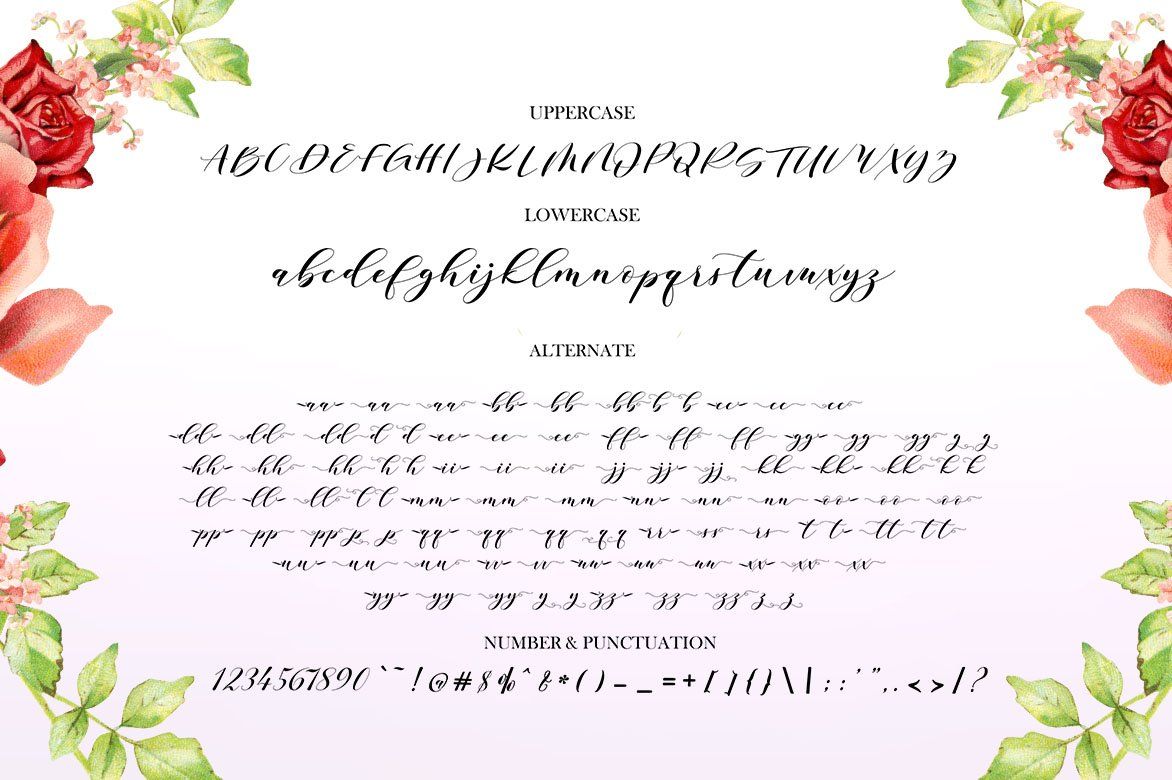 UPPERCASE
ABCDEFGHIJKLMNOPQRSTUVWXYZ
LOWERCASE
abcdefghijklmnopqrstuvwxyz
ALTERNATE
aa aa aa bb bb bb b b cc cc cc
dd dd dd d d ee ee ee ff ff ff gg gg gg g g
hh hh hh h h ii ii ii jj jj jj kk kk kk k k
ll ll ll l l mm mm mm nn nn nn oo oo oo
pp pp pp p p qq qq qq q q rr ss rs t t tt tt
uu uu uu vv vv ww ww ww xx xx xx
yy yy yy y y zz zz zz z z
NUMBER & PUNCTUATION
1234567890`~!@#$%^&*()-_=+[]{}\|;:'",.<>/?